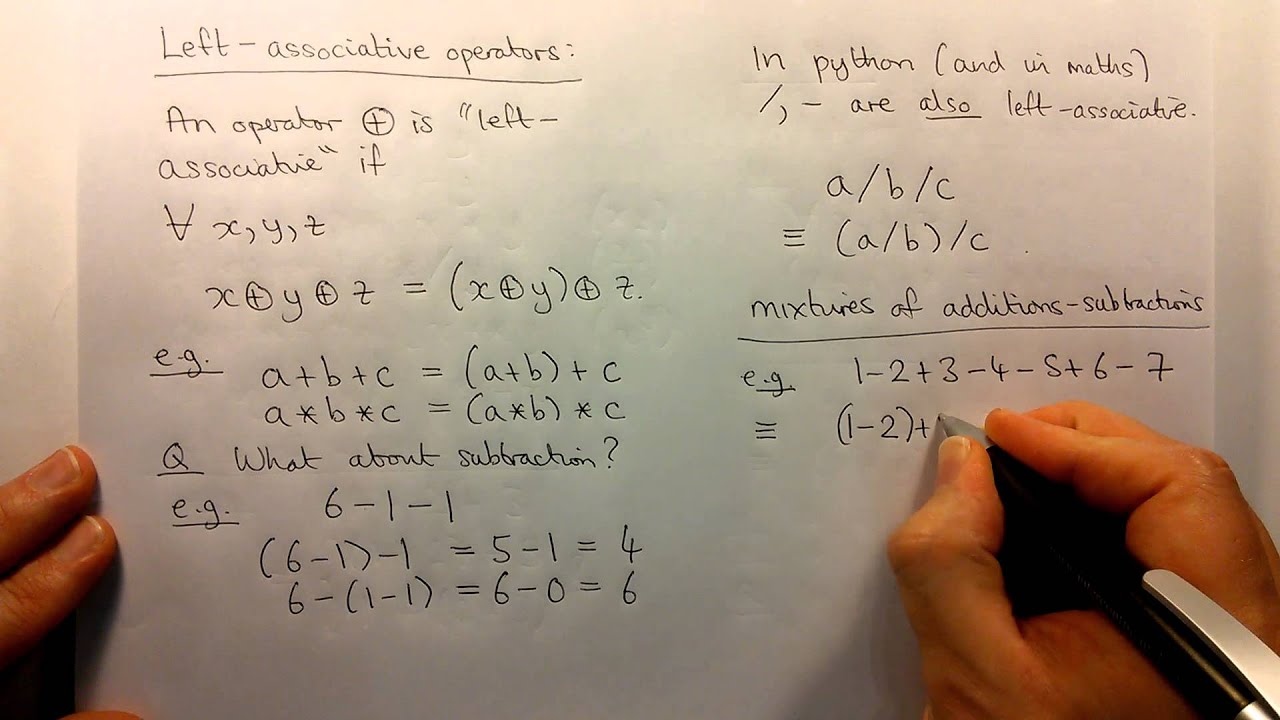 Left-associative operators:
An operator ⊕ is "left-
associative" if
∀ x, y, z
x⊕y⊕z = (x⊕y)⊕z.
e.g. a+b+c = (a+b)+c
a*b*c = (a*b)*c
Q What about subtraction?
e.g. 6-1-1
(6-1)-1 = 5-1 = 4
6-(1-1) = 6-0 = 6
In python (and in maths)
/, - are also left-associative.
a/b/c
≡ (a/b)/c
mixtures of additions-subtractions
e.g. 1-2+3-4-5+6-7
≡ (1-2)+